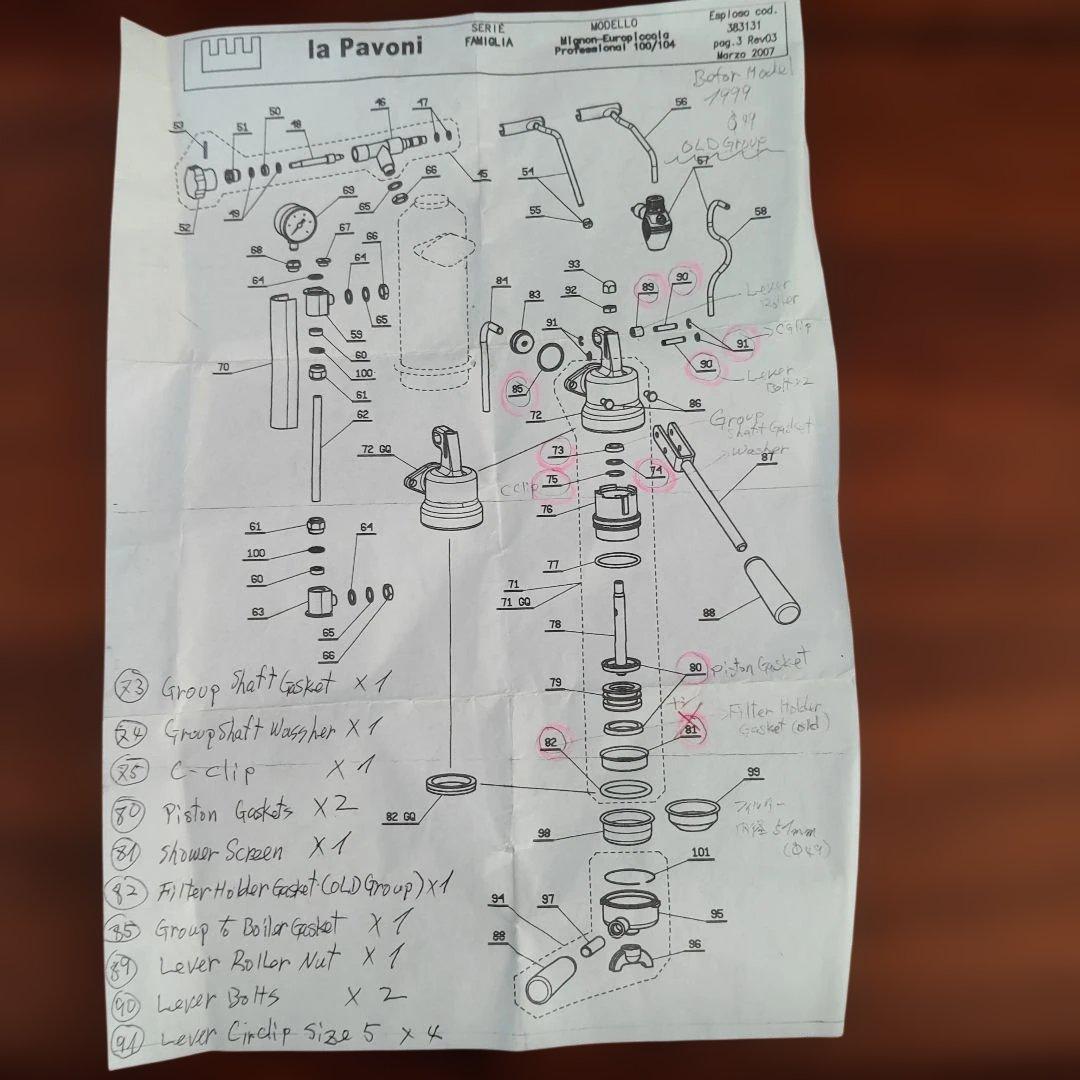 la Pavoni
SERIE
FAMIGLIA
MODELLO
Mignon-Europiccola
Professional 100/104
Esploso cod.
383131
pag.3 Rev03
Marzo 2007
1999
OLD Group
53
51
50
48
46
47
56
52
49
65
66
45
54
55
57
58
69
68
67
64
66
64
59
65
60
100
61
62
70
84
83
93
92
89
90
Lever
Roller
91
85
91
C clip
90
Lever
Bolt x2
72
86
Group
Shaft Gasket
Washer
72 GQ
73
74
C clip
75
76
87
61
64
100
60
63
65
66
77
71
71 GQ
78
88
79
80
Piston Gasket
81
Filter Holder
Gasket (old)
82
82 GQ
99
フィルター
内径 51mm
(Φ49)
98
101
94
97
95
88
96
73 Group Shaft Gasket x 1
74 Group Shaft Wassher x 1
75 C-clip x 1
80 Piston Gaskets x 2
81 Shower Screen x 1
82 Filter Holder Gasket (OLD Group) x 1
85 Group to Boiler Gasket x 1
89 Lever Roller Nut x 1
90 Lever Bolts x 2
91 Lever Circlip Size 5 x 4